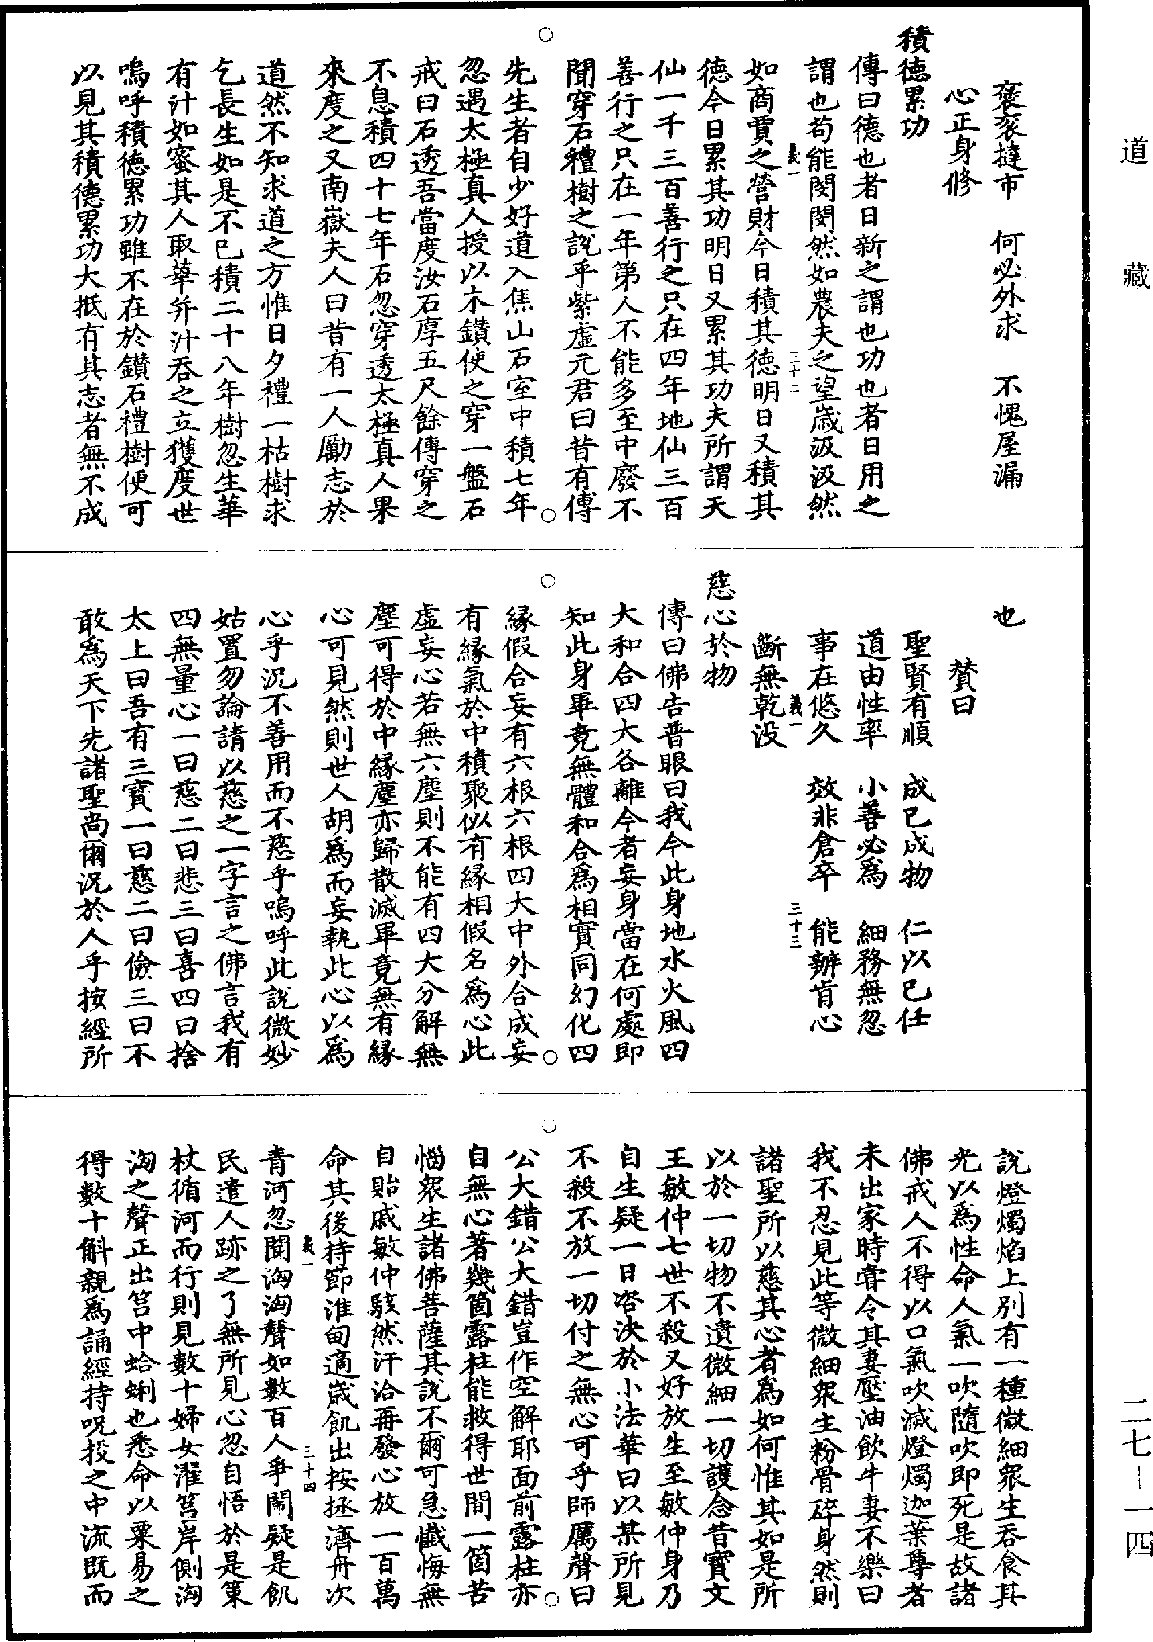 道藏
褒袞撻市　何必外求　不愧屋漏
心正身修
積德累功
傳曰德也者日新之謂也功也者日用之
謂也苟能閔閔然如農夫之望歲汲汲然
義一
三十二
如商賈之營財今日積其德明日又積其
德今日累其功明日又累其功夫所謂天
仙一千三百善行之只在四年地仙三百
善行之只在一年第人不能多至中廢不
聞穿石禮樹之說乎紫虛元君曰昔有傅
先生者自少好道入焦山石室中積七年
忽遇太極真人授以木鑽使之穿一盤石
戒曰石透吾當度汝石厚五尺餘傳穿之
不息積四十七年石忽穿透太極真人果
來度之又南嶽夫人曰昔有一人勵志於
道然不知求道之方惟日夕禮一枯樹求
乞長生如是不已積二十八年樹忽生華
有汁如蜜其人取華并汁吞之立獲度世
嗚呼積德累功雖不在於鑽石禮樹便可
以見其積德累功大抵有其志者無不成
也
贊曰
聖賢有順　成己成物　仁以己任
道由性率　小善必為　細務無忽
事在悠久　效非倉卒　能辦肯心
義一
三十三
斷無乾没
慈心於物
傳曰佛告普眼曰我今此身地水火風四
大和合四大各離今者妄身當在何處即
知此身畢竟無體和合為相實同幻化四
緣假合妄有六根六根四大中外合成妄
有緣氣於中積聚似有緣相假名為心此
虛妄心若無六塵則不能有四大分解無
塵可得於中緣塵亦歸散滅畢竟無有緣
心可見然則世人胡為而妄執此心以為
心乎況不善用而不慈乎嗚呼此說微妙
姑置勿論請以慈之一字言之佛言我有
四無量心一曰慈二曰悲三曰喜四曰捨
太上曰吾有三寳一曰慈二曰儉三曰不
敢為天下先諸聖尚爾況於人乎按經所
說燈燭焰上別有一種微細衆生吞食其
光以為性命人氣一吹隨吹即死是故諸
佛戒人不得以口氣吹滅燈燭迦葉尊者
未出家時嘗令其妻壓油飲牛妻不樂曰
我不忍見此等微細衆生粉骨碎身然則
諸聖所以慈其心者為如何惟其如是所
以於一切物不遺微細一切護念昔寳文
王敏仲七世不殺又好放生至敏仲身乃
自生疑一日咨決於小法華曰以某所見
不殺不放一切付之無心可乎師厲聲曰
公大錯公大錯豈作空解耶面前露柱亦
自無心著幾箇露柱能救得世間一箇苦
惱衆生諸佛菩薩其說不爾可急懺悔無
自貽戚敏仲駭然汗洽再發心放一百萬
命其後持節淮甸適歲飢出按拯濟舟次
義一
三十四
青河忽聞洶洶聲如數百人爭鬧疑是飢
民遣人跡之了無所見心忽自悟於是策
杖循河而行則見數十婦女濯筥岸側洶
洶之聲正出筥中蛤蜊也悉命以粟易之
得數十斛親為誦經持呪投之中流既而
二七－一四